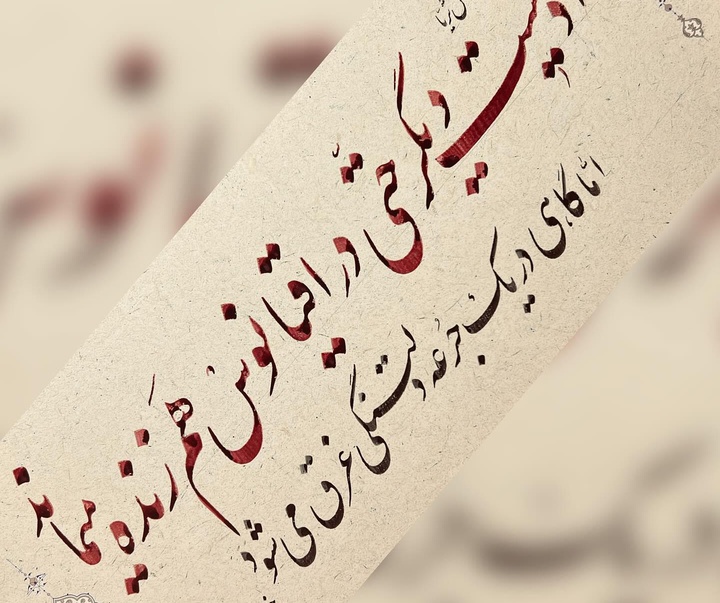 دیگر حتّی در اقیانوس هم زنده میماند
امّا گاهی در یک جُرعه دلتنگی غرق می شود